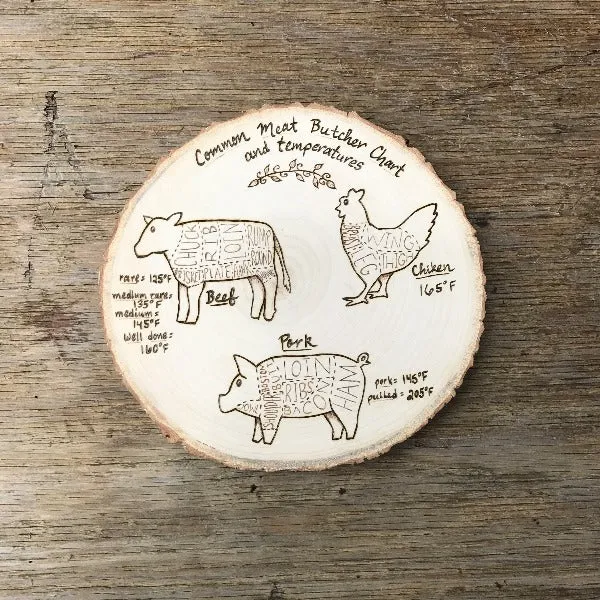 Common Meat Butcher Chart
and temperatures
CHUCK
RIB
LOIN
RUMP
ROUND
BRISKET
PLATE
FLANK
rare = 125°F
medium rare =
135°F
medium =
145°F
well done =
160°F
Beef
BREAST
WING
THIG
LEG
Chiken
165°F
Pork
LOIN
RIBS
BACON
HAM
pork = 145°F
pulled = 205°F